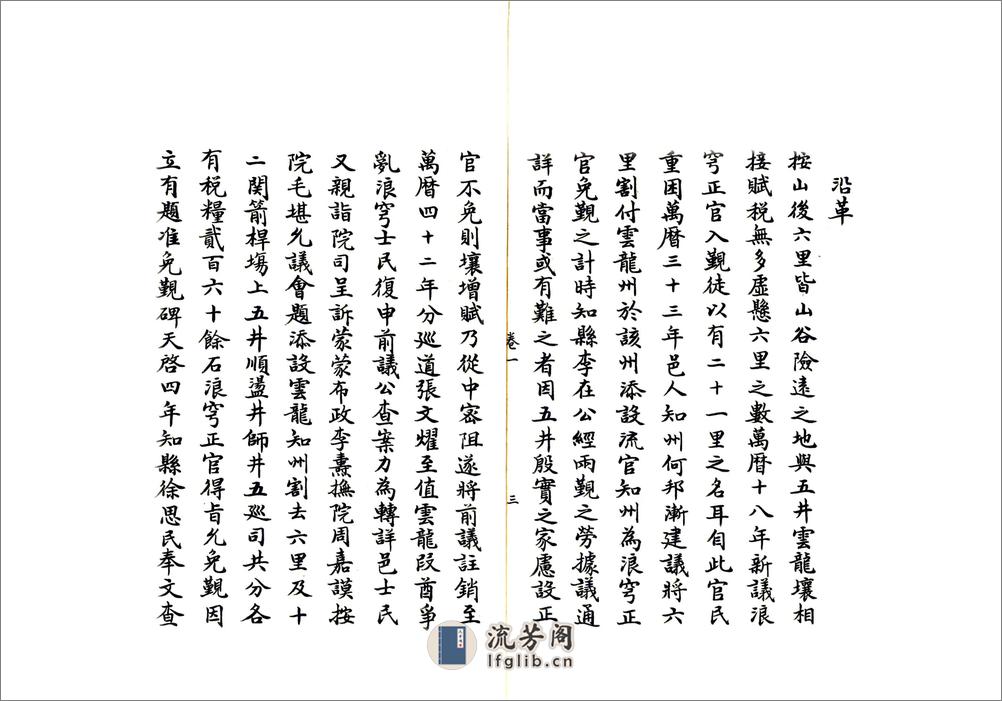 沿革
按山後六里皆山谷險遠之地與五井雲龍壤相
接賦稅無多虛懸六里之數萬曆十八年新議浪
穹正官入覲徒以有二十一里之名耳自此官民
重困萬曆三十三年邑人知州何邦漸建議將六
里割付雲龍州於該州添設流官知州為浪穹正
官免覲之計時知縣李在公經兩覲之勞據議通
詳而當事或有難之者因五井殷實之家慮設正
卷一
三
官不免則壤增賦乃從中密阻遂將前議註銷至
萬曆四十二年分巡道張文燿至值雲龍段酋爭
亂浪穹士民復申前議公查案力為轉詳邑士民
又親詣院司呈訴蒙蒙布政李燾撫院周嘉謨按
院毛堪允議會題添設雲龍知州割去六里及十
二関箭桿場上五井順盪井師井五巡司共分各
有稅糧貳百六十餘石浪穹正官得旨允免覲因
立有題准免覲碑天啓四年知縣徐思民奉文查
流芳阁
lfglib.cn